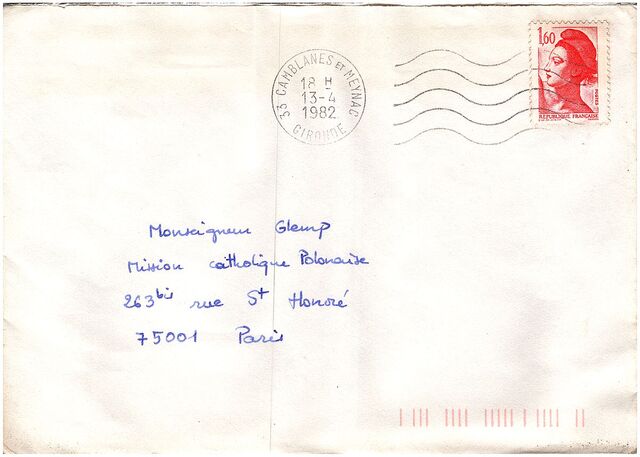 1,60
POSTES
RÉPUBLIQUE FRANÇAISE
33 CAMBLANES ET MEYNAC
18 H
13-4
1982
GIRONDE
Monseigneur Glemp
Mission catholique Polonaise
263 bis rue St Honoré
75001 Paris